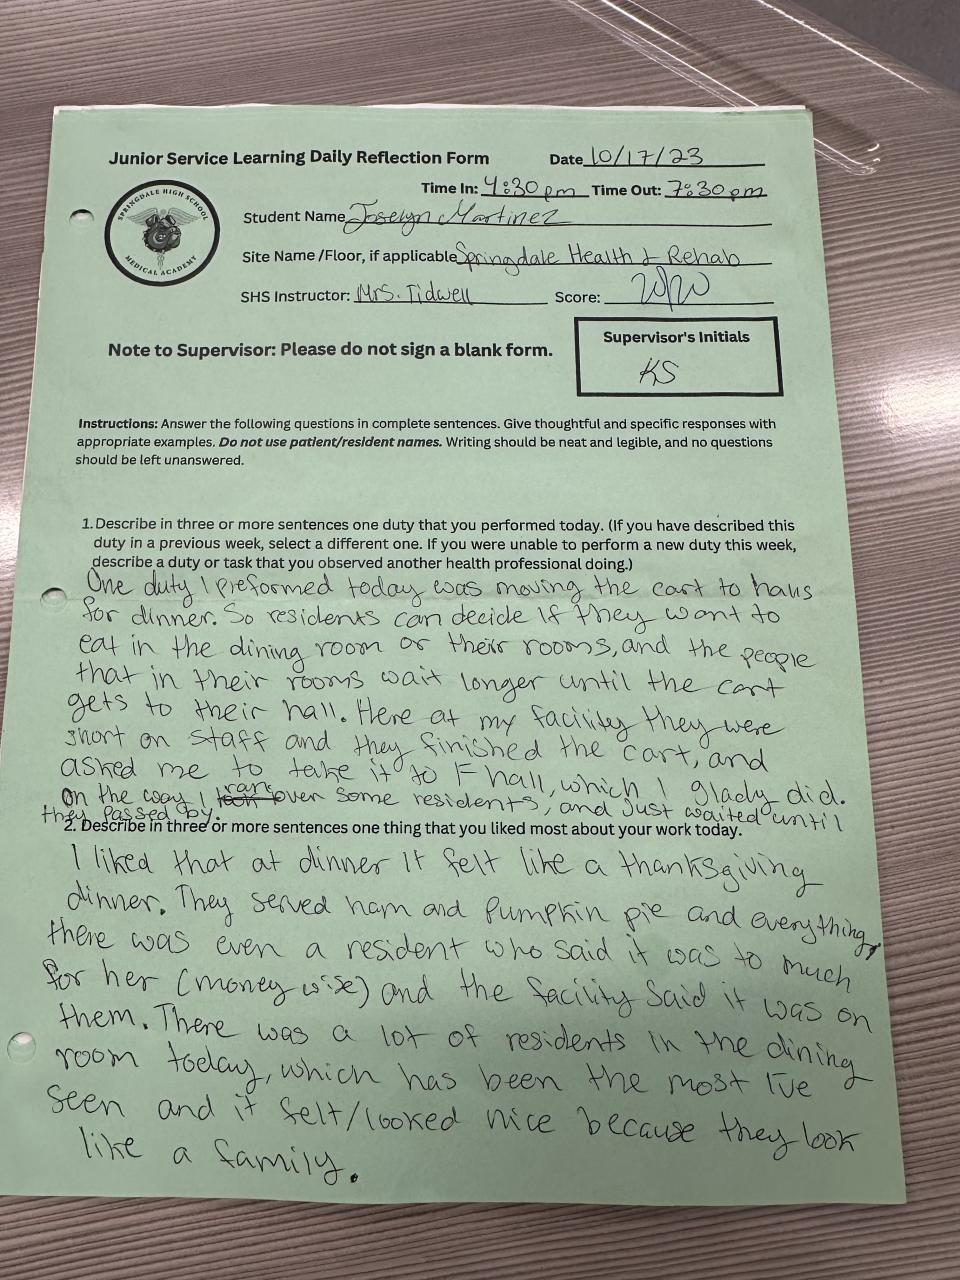 Junior Service Learning Daily Reflection Form Date 10/17/23
Time In: 4:30 pm Time Out: 7:30 pm
SPRINGDALE HIGH SCHOOL
MEDICAL ACADEMY
Student Name Joselyn Martinez
Site Name /Floor, if applicable Springdale Health & Rehab
SHS Instructor: Mrs. Tidwell Score: 20/20
Note to Supervisor: Please do not sign a blank form.
Supervisor's Initials
KS
Instructions: Answer the following questions in complete sentences. Give thoughtful and specific responses with
appropriate examples. Do not use patient/resident names. Writing should be neat and legible, and no questions
should be left unanswered.
1. Describe in three or more sentences one duty that you performed today. (If you have described this
duty in a previous week, select a different one. If you were unable to perform a new duty this week,
describe a duty or task that you observed another health professional doing.)
One duty I preformed today was moving the cart to halls
for dinner. So residents can decide if they want to
eat in the dining room or their rooms, and the people
that in their rooms wait longer until the cart
gets to their hall. Here at my facility they were
short on staff and they finished the cart, and
asked me to take it to F hall, which I glady did.
On the way I ran over some residents, and just waited until
they passed by.
2. Describe in three or more sentences one thing that you liked most about your work today.
I liked that at dinner it felt like a thanksgiving
dinner. They served ham and pumpkin pie and everything,
there was even a resident who said it was to much
for her (money wise) and the facility said it was on
them. There was a lot of residents in the dining
room today, which has been the most I've
seen and it felt/looked nice because they look
like a family.